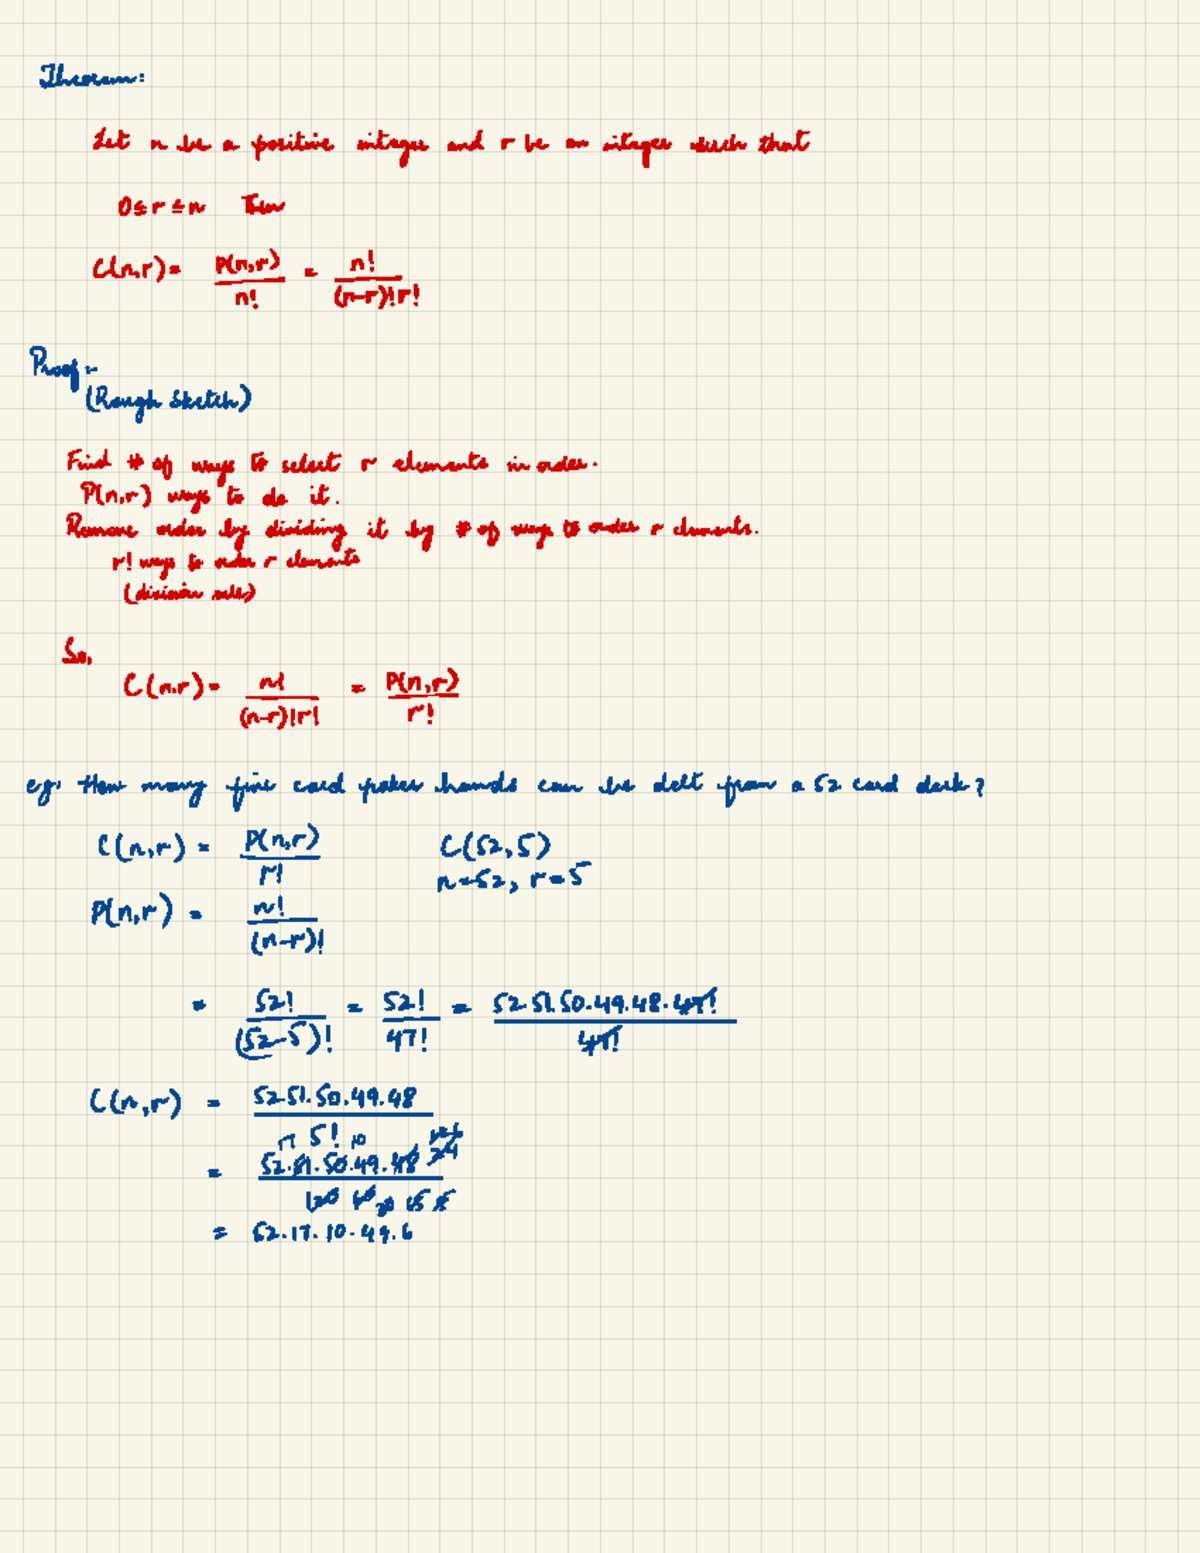 Theorem:
Let n be a positive integer and r be an integer such that
0≤r≤n Then
C(n,r) = P(n,r)/n! = n!/(n-r)!r!
Proof:-
(Rough Sketch)
Find # of ways to select r elements in order.
P(n,r) ways to do it.
Remove order by dividing it by # of ways to order r elements.
r! ways to order r elements
(division rule)
So,
C(n,r) = n!/(n-r)!r! = P(n,r)/r!
eg: How many five card poker hands can be delt from a 52 card deck?
C(n,r) = P(n,r)/r! C(52,5)
n=52, r=5
P(n,r) = n!/(n-r)!
= 52!/(52-5)! = 52!/47! = 52.51.50.49.48.47!/47!
C(n,r) = 52.51.50.49.48/5!
17 10
= 52.51.50.49.48 24/120 60 20 15 5
= 52.17.10.49.6